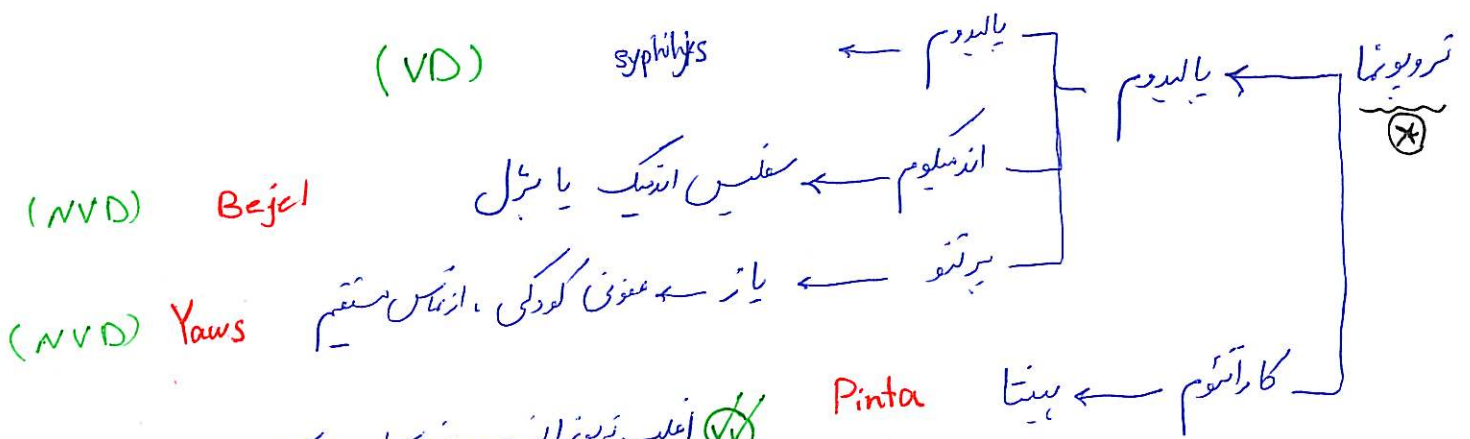 تروپونما ← پالیدوم ← پالیدوم ← syphilis (VD)
اندمیکوم ← سفلیس اندمیک یا بژل Bejel (NVD)
پرتنو ← یاز ← عفونی کودکی، از تماس مستقیم Yaws (NVD)
کاراتئوم ← پینتا Pinta
اغلب